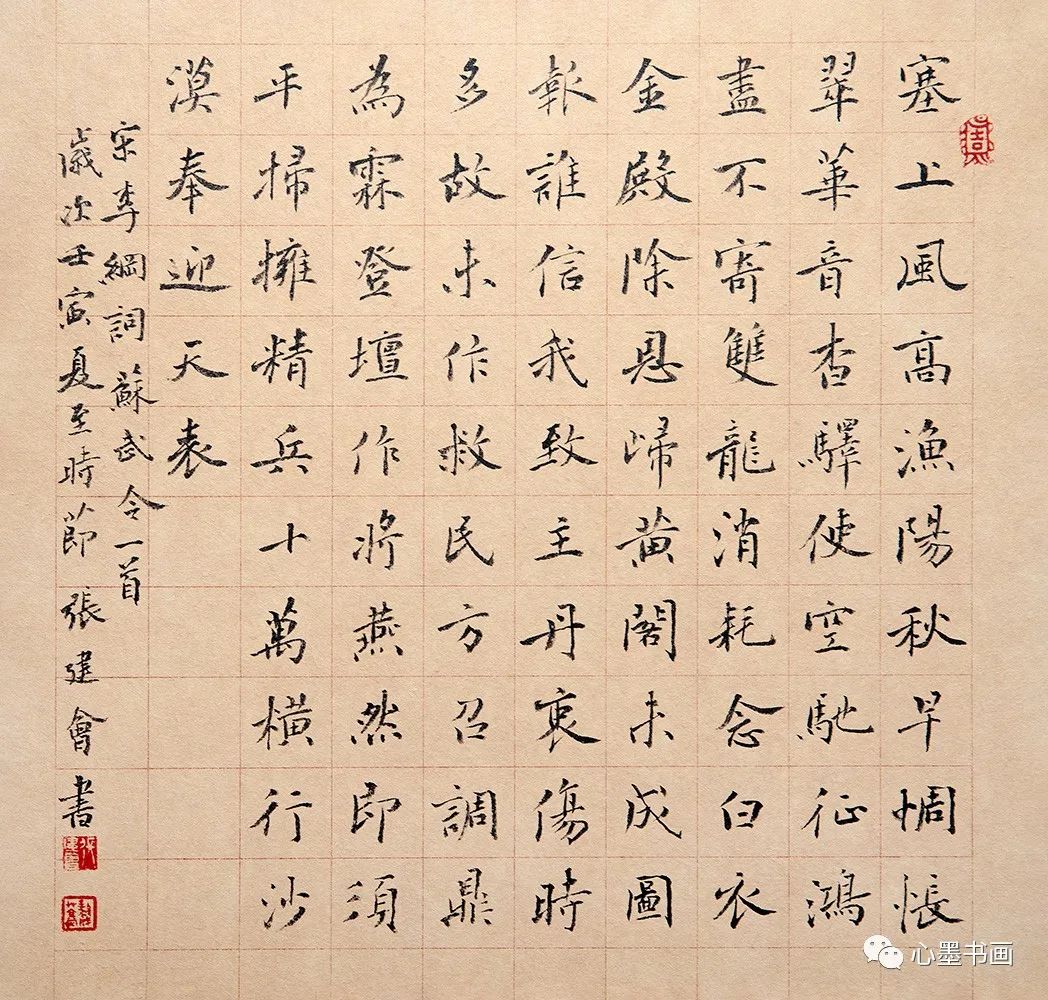 塞上風高漁陽秋早惆悵
翠華音杳驛使空馳征鴻
盡不寄雙龍消耗念白衣
金殿除恩歸黃閣未成圖
報誰信我致主丹衷傷時
多故未作救民方召調鼎
為霖登壇作將燕然即須
平掃擁精兵十萬橫行沙
漠奉迎天表
宋李綱詞蘇武令一首
歲次壬寅夏至時節張建會書
心墨书画